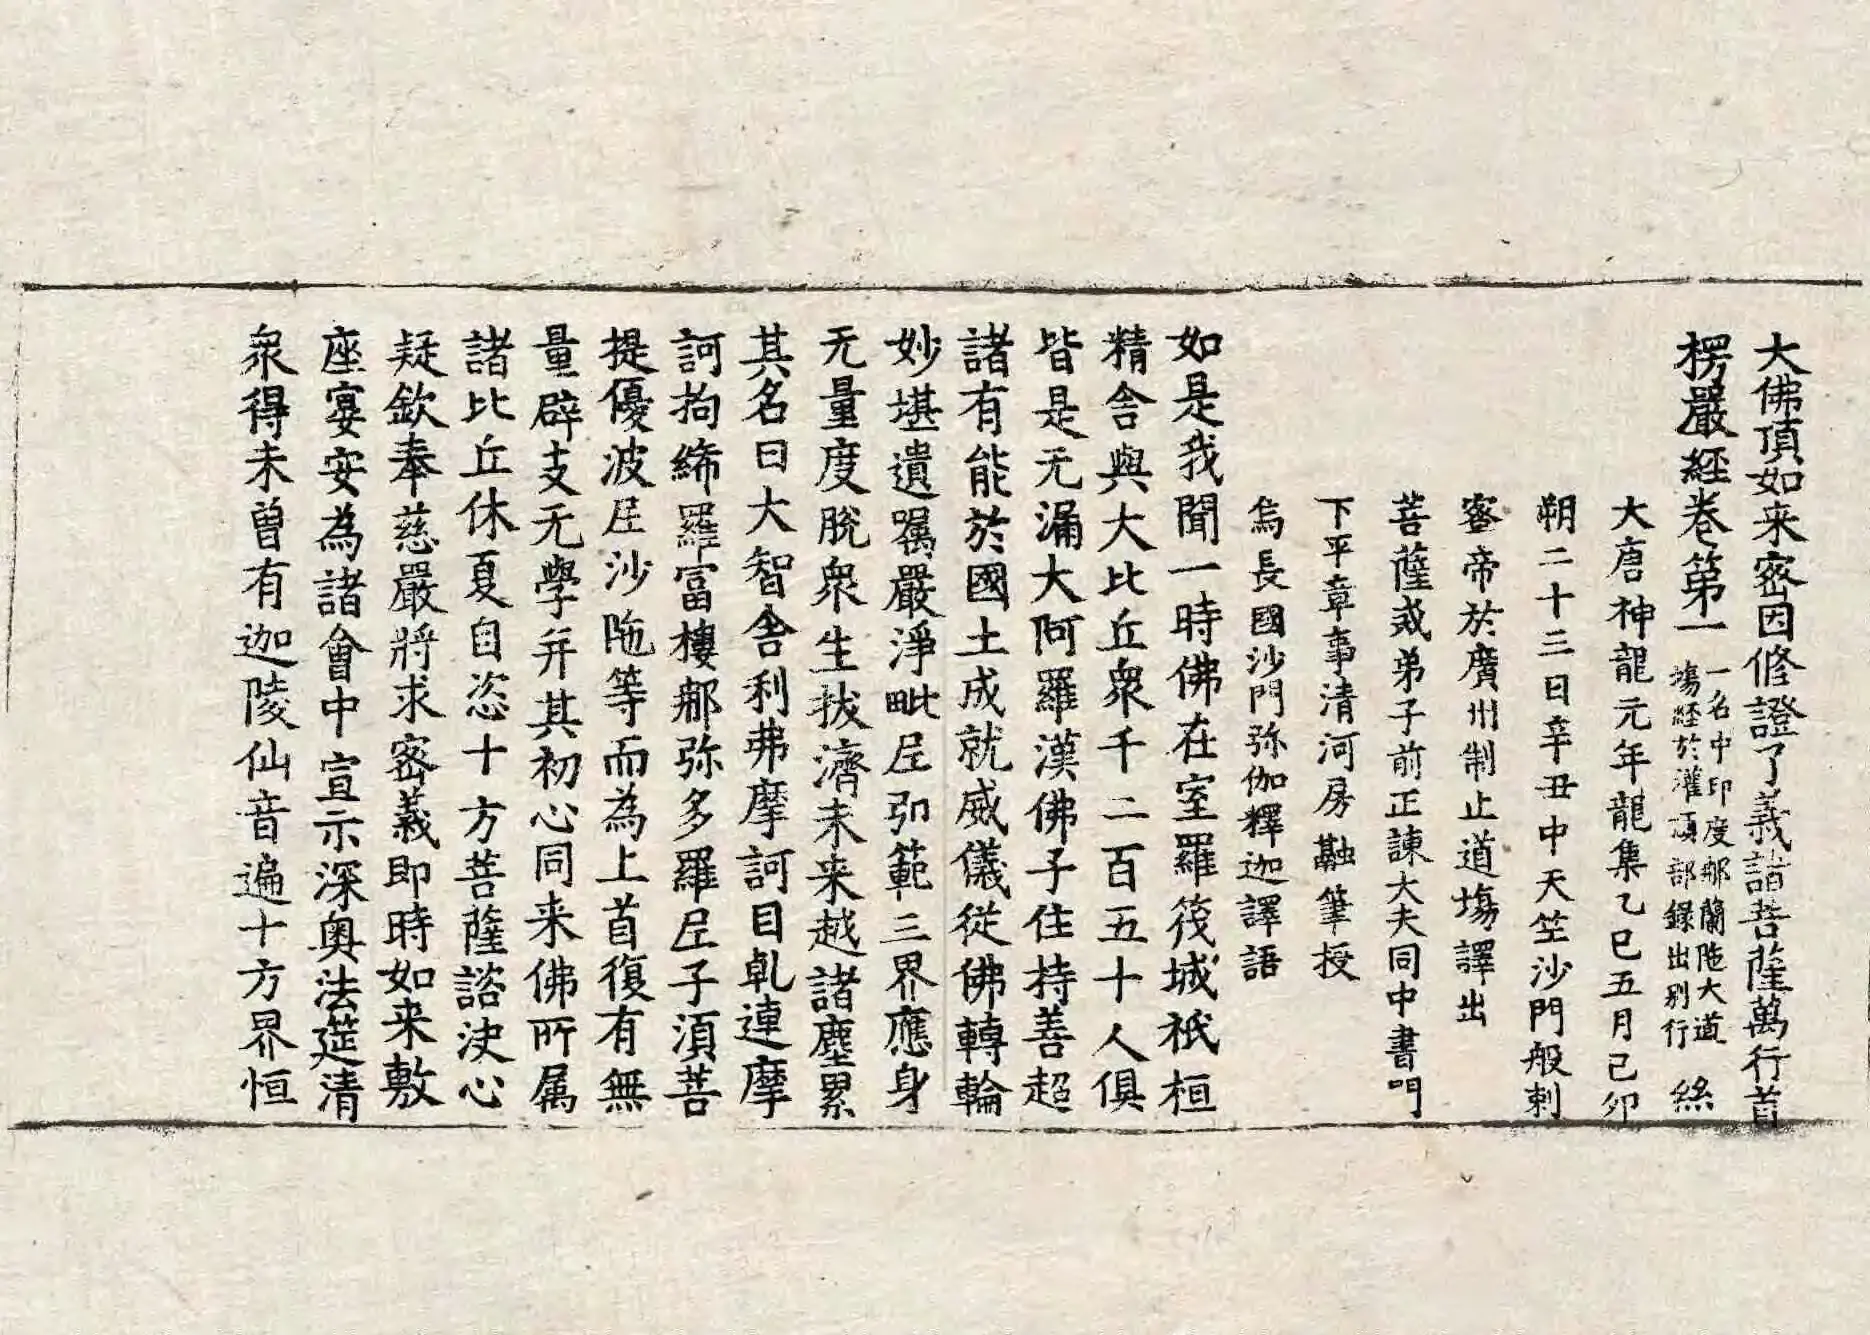 大佛頂如来密因修證了義諸菩薩萬行首
楞嚴經卷第一
一名中印度那蘭陁大道
塲經於灌頂部録出别行
絲
大唐神龍元年龍集乙巳五月己卯
朔二十三日辛丑中天笁沙門般剌
蜜帝於廣州制止道塲譯出
菩薩戒弟子前正諫大夫同中書門
下平章事清河房融筆授
烏長國沙門弥伽釋迦譯語
如是我聞一時佛在室羅筏城祇桓
精舍與大比丘衆千二百五十人俱
皆是无漏大阿羅漢佛子住持善超
諸有能於國土成就威儀從佛轉輪
妙堪遺囑嚴淨毗𡰱弘範三界應身
无量度脫衆生拔濟未来越諸塵累
其名曰大智舍利弗摩訶目乹連摩
訶拘絺羅富樓那弥多羅𡰱子湏菩
提優波𡰱沙陁等而為上首復有無
量辟支无學并其初心同来佛所属
諸比丘休夏自恣十方菩薩諮決心
疑欽奉慈嚴將求密義即時如来敷
座宴安為諸會中宣示深奥法莚清
衆得未曽有迦陵仙音遍十方界恒